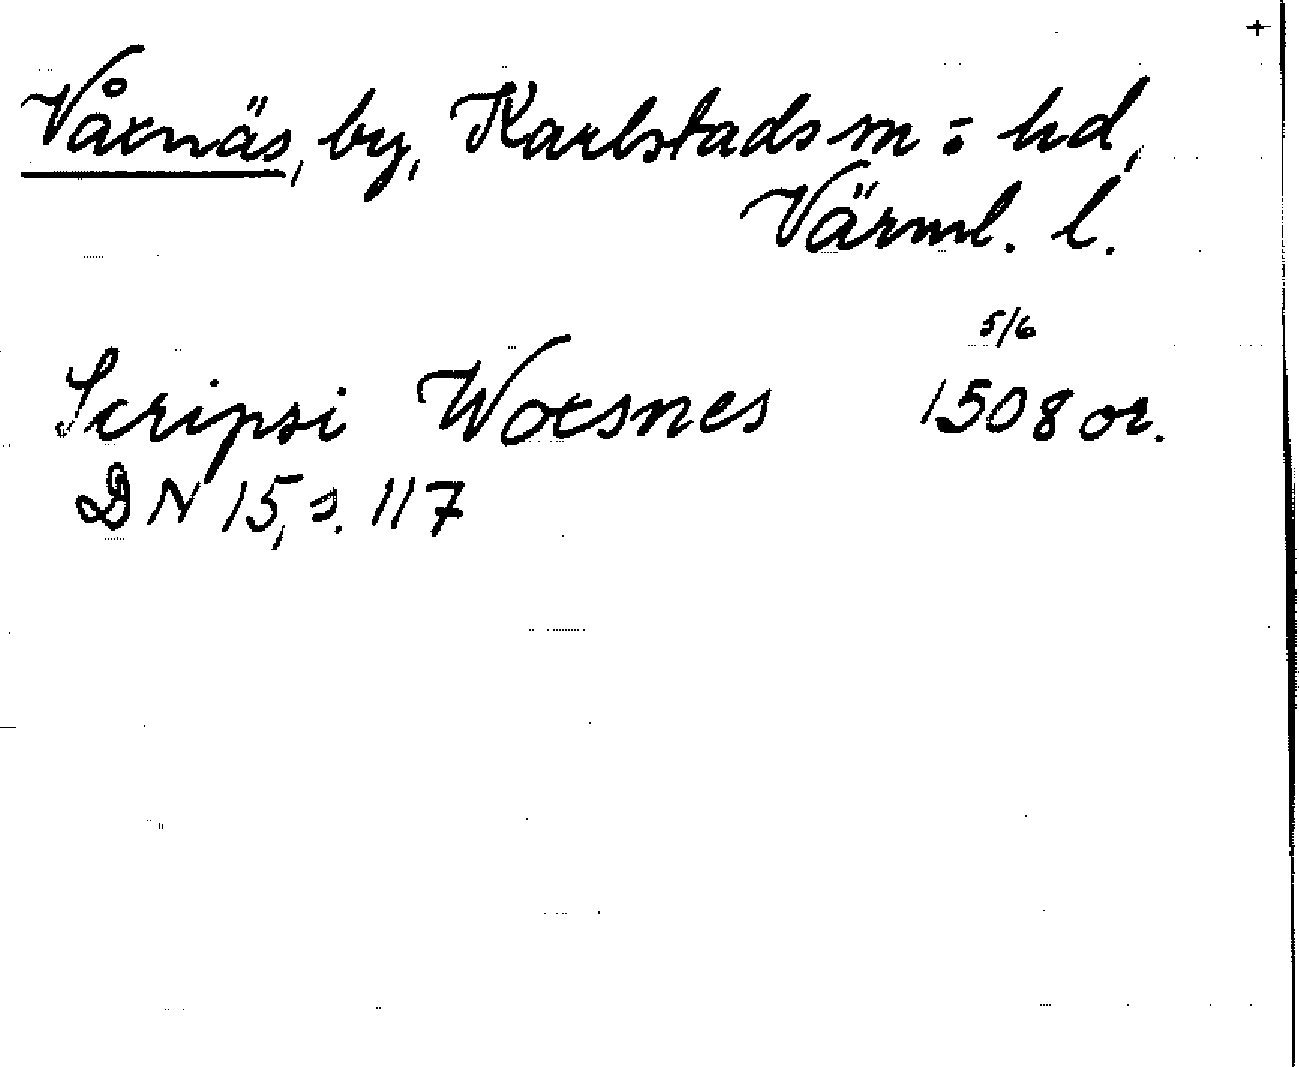 Våxnäs, by, Karlstads m = hd,
Värml. l.
5/6
Scripsi Woxsnes 1508 or.
DN 15, s. 117